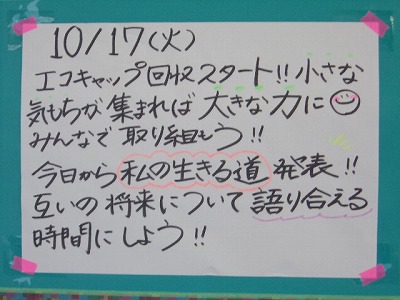 10/17(火)
エコキャップ回収スタート!! 小さな
気もちが集まれば大きな力に
みんなで取り組もう!!
今日から私の生きる道発表!!
互いの将来について語り合える
時間にしよう!!